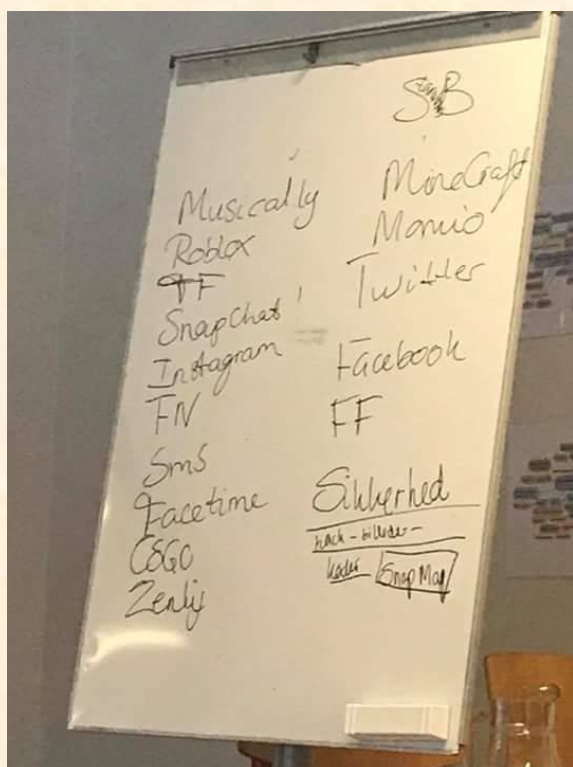 Musically
Roblox
SnapChat
Instagram
FN
Sms
Facetime
CSGO
Zenly
MineCraft
Twitter
Facebook
FF
Sikkerhed
hack - billeder -
koder SnapMap